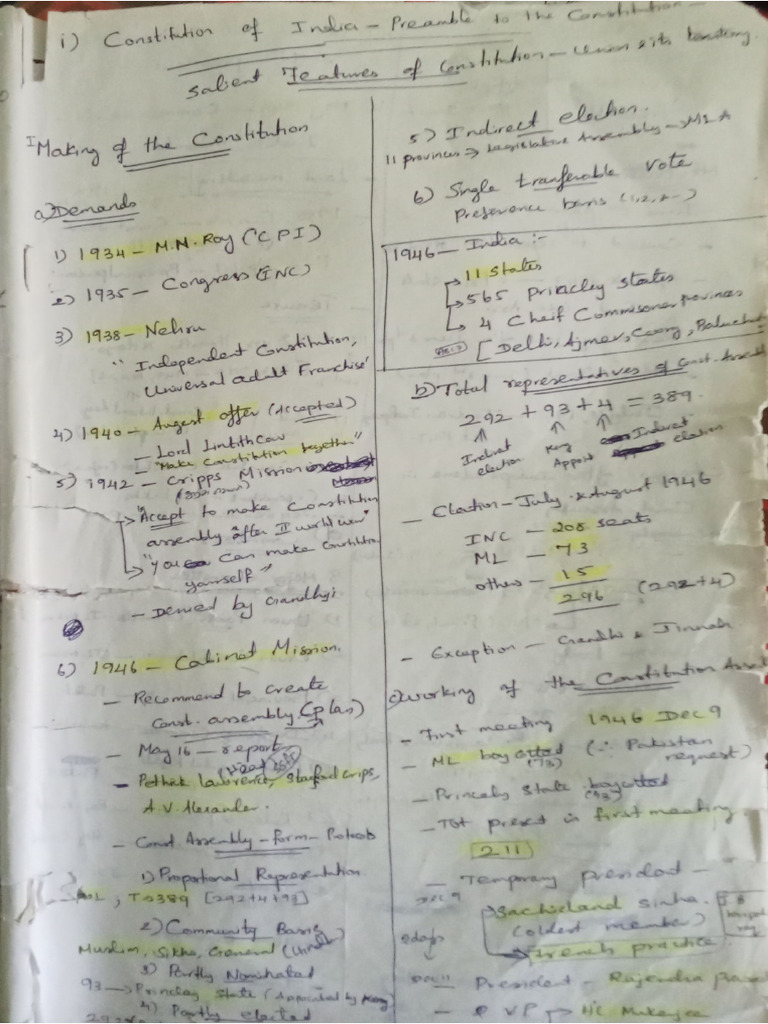 i) Constitution of India - Preamble to the Constitution -
salient Features of Constitution - Union & its territory.
I Making of the Constitution
a) Demands
1) 1934 - M.N. Roy (CPI)
2) 1935 - Congress (INC)
3) 1938 - Nehru
"Independent Constitution,
Universal adult Franchise"
4) 1940 - August offer (Accepted)
- Lord Linlithcow
"Make Constitution together"
5) 1942 - Cripps Mission
"Accept to make Constitution
assembly after II world war"
"You Can make Constitution
yourself"
- Denied by Gandhyi
6) 1946 - Cabinet Mission,
- Recommend to create
Const. assembly (plan)
- May 16 - report
- Pethick lawrence, Stafford crips,
A.V. Alexander.
- Const Assembly - form -
1) Proportional Representation
T → 389 [292+4+93]
2) Community Basis
Muslim, Sikhs, General (Hindu)
3) Partly Nominated
93 → Princley State (Appointed by King)
4) Partly elected
5) Indirect election.
11 provinces → Legislative Assembly → MLA
6) Single tranferable Vote
Preference basis (1,2,
1946 - India :-
11 states
565 Princley states
4 Cheif Commisoner provinces
[Delhi, Ajmer, Coorg, Baluchist
b) Total representatives of Const. Assembl
292 + 93 + 4 = 389.
Indirect King Indirect
election Appoint election
- Election - July & August 1946
INC - 208 seats
ML - 73
others - 15
296 (292+4)
- Exception - Gandhi & Jinnah
c) Working of the Constitution Asse
- First meeting 1946 Dec 9
- ML boycotted (∵ Pakistan
(73) request)
- Princely State boycotted
(93)
- Tot present in first meeting
[211]
- Temporary president -
Dec 9
Sachidand sinha.
(oldest member)
2 days
french practice
Dec 11 President - Rajendra pra
- VP → HC Mukerjee